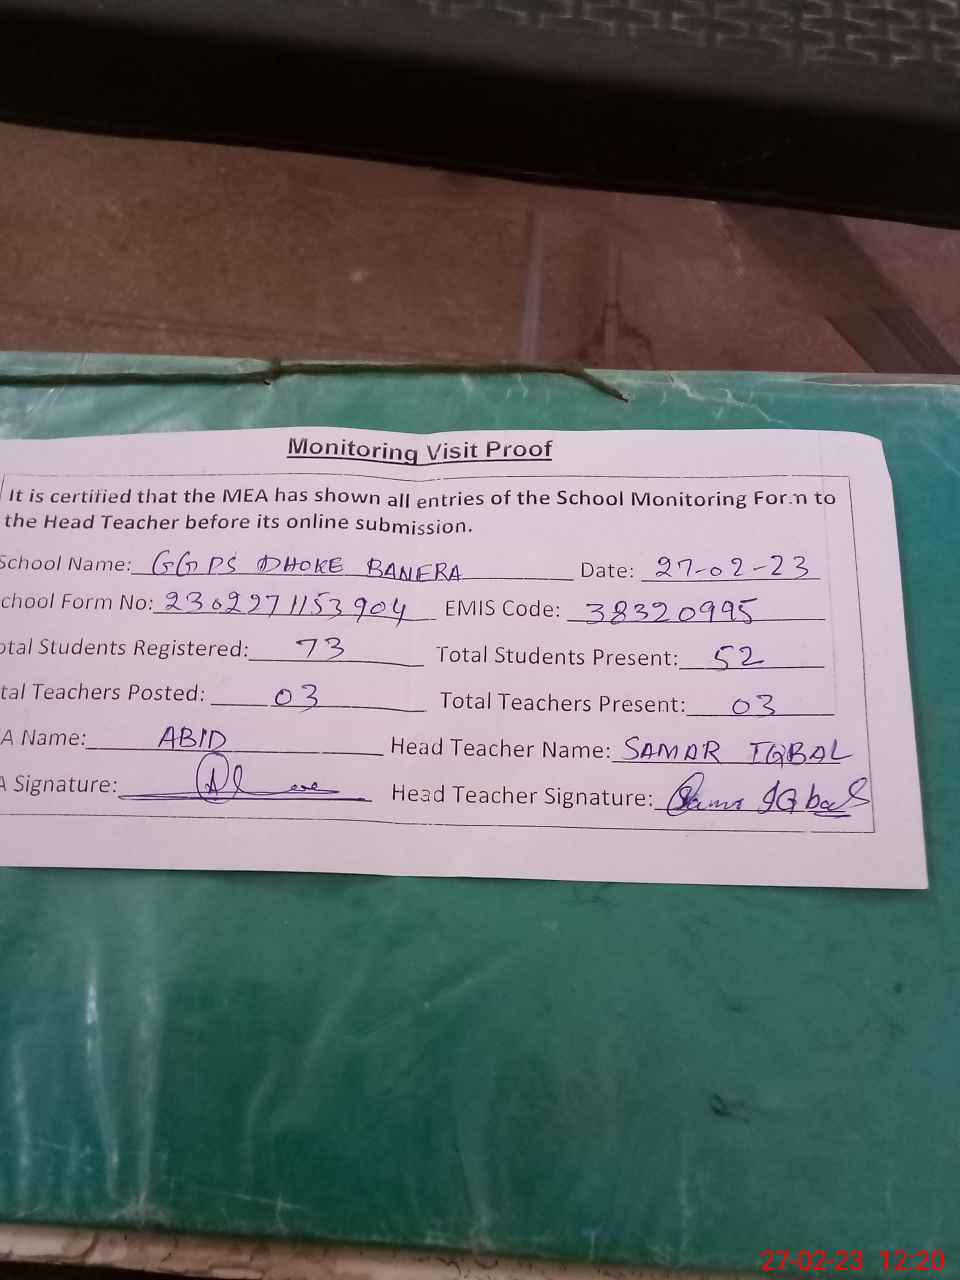 Monitoring Visit Proof
It is certified that the MEA has shown all entries of the School Monitoring Form to
the Head Teacher before its online submission.
School Name: GGPS DHOKE BANERA Date: 27-02-23
chool Form No: 2302271153904 EMIS Code: 38320995
otal Students Registered: 73 Total Students Present: 52
tal Teachers Posted: 03 Total Teachers Present: 03
A Name: ABID Head Teacher Name: SAMAR IQBAL
A Signature: Head Teacher Signature: Samar IQbal
27-02-23 12:20